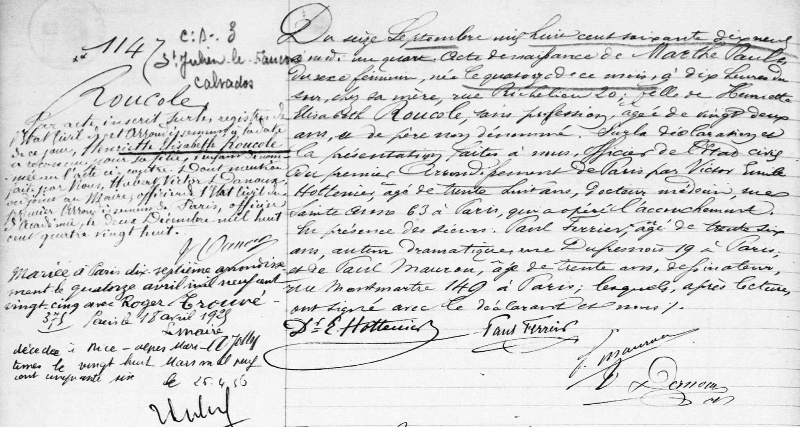 1147
C.A. 3
St Julien-le-Faucon
Calvados
Roucole
Par acte, inscrit sur les registres de
l'Etat civil de cet Arrondissement à la date
de ce jour, Henriette Elisabeth Roucole
a reconnu pour sa fille, l'enfant dénom-
mée en l'acte ci-contre. Dont mention
faite par Nous, Hubert Victor
adjoint au Maire, officier de l'Etat civil du
premier Arrondissement de Paris, officier
d'Académie, le douze Décembre mil huit
cent quatre vingt huit.
Mariée à Paris dix-septième arrondisse-
ment le quatorze avril mil neuf cent
vingt-cinq avec Roger Trouvé
Paris le 18 avril 1925
Le maire
décédée à Nice - Alpes Mari-
times le vingt huit Mars mil neuf
cent cinquante six le 25.4.56
Du seize Septembre mil huit cent soixante dix neuf
à midi un quart Acte de naissance de Marthe Paule
du sexe féminin, née le quatorze de ce mois, à dix heures du
soir, chez sa mère, rue Richelieu 20; fille de Henriette
Elisabeth Roucole, sans profession, âgée de vingt deux
ans, et de père non dénommé. Sur la déclaration et
la présentation faites à nous, officier de l'Etat civil
du premier Arrondissement de Paris par Victor Emile
Hottenier, âgé de trente huit ans, docteur médecin, rue
Sainte Anne 63 à Paris, qui a opéré l'accouchement.
En présence des sieurs. Paul Ferrier, âgé de trente six
ans, auteur dramatique, rue Dufresnois 19 à Paris,
et de Paul Maurou, âgé de trente ans, dessinateur,
rue Montmartre 149 à Paris; lesquels, après lecture,
ont signé avec le déclarant et nous.
Dr E Hottenier
Paul Ferrier
P. Maurou